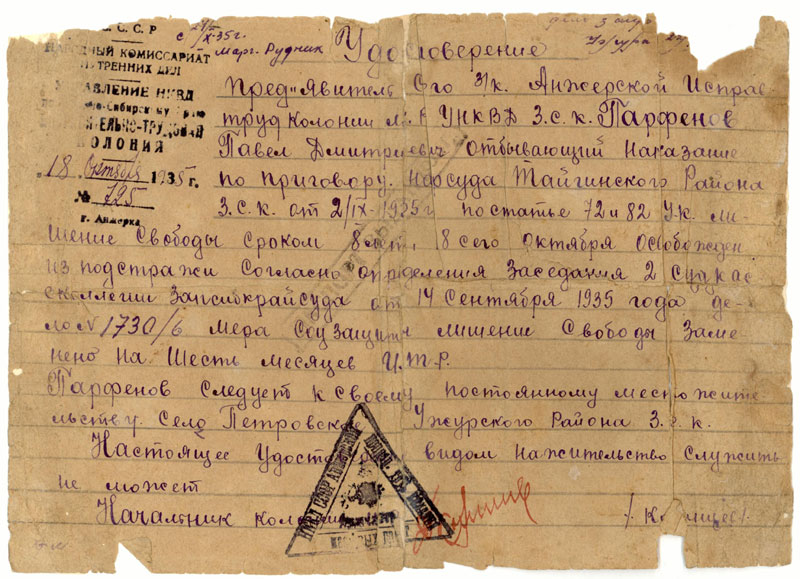 С.С.С.Р
НАРОДНЫЙ КОМИССАРИАТ
ВНУТРЕННИХ ДЕЛ
УПРАВЛЕНИЕ НКВД
ТРУДОВАЯ
КОЛОНИЯ
18 Октября 1935 г.
№ 725
г. Анжерка
с
X-35 г.
Марг. Рудник
Удостоверение
Пред"явитель сего з/к. Анжерской Исправ
труд Колонии УНКВД З.С.К. Парфенов
Павел Дмитриевич отбывающий наказание
по приговору. Нарсуда Тайгинского Района
З.С.К. от 2/IX-1935 г постатье 72 и 82 У.К. ли-
шение Свободы сроком 8 лет. 18 сего октября освобожден
из подстражи Согласно определения Заседания 2
коллегии Запсибкрайсуда от 14 Сентября 1935 года де-
ло № 1730/6 мера Соц защиты лишение Свободы Заме-
нено на Шесть месяцев И.Т.Р.
Парфенов следует к своему постоянному местожите
льству. Село Петровское Ужурского Района З.С.К.
Настоящее видом нажительство служить
не может
Начальник